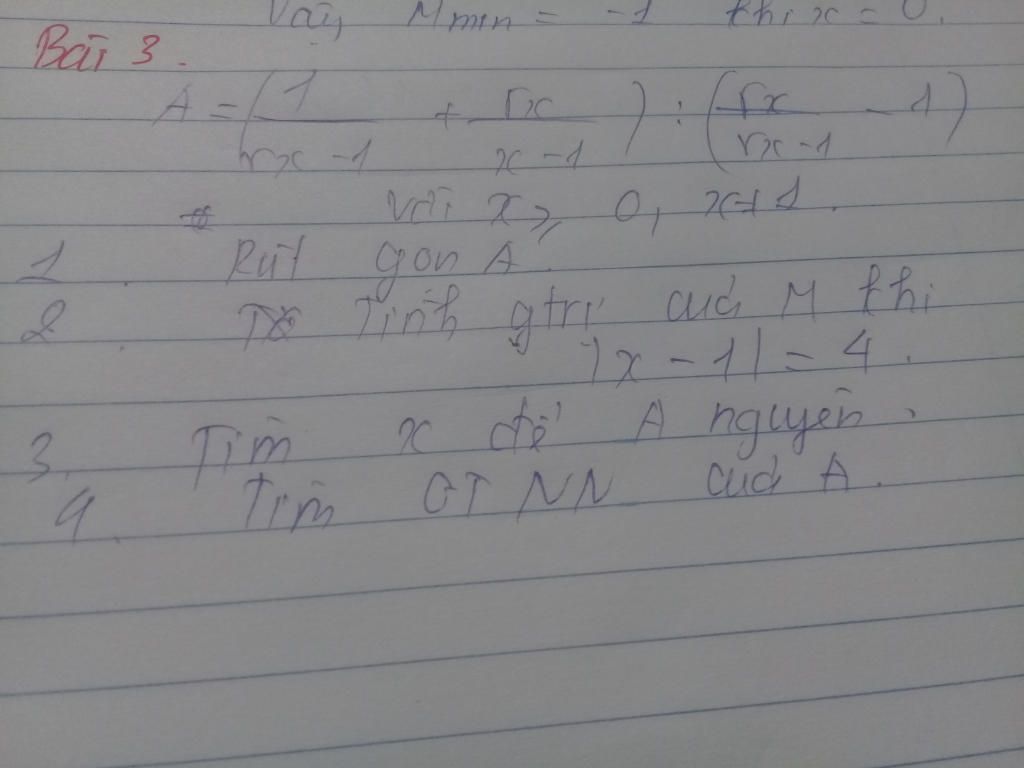 Vậy Mmin = -1 khi x = 0.
Bài 3.
A = (1/(√x - 1) + √x/(x - 1)) : (√x/(√x - 1) - 1)
với x ≥ 0, x ≠ 1.
1. Rút gọn A.
2. Tính gtrị của M khi
|x - 1| = 4.
3. Tìm x để A nguyên.
4. Tìm GTNN của A.